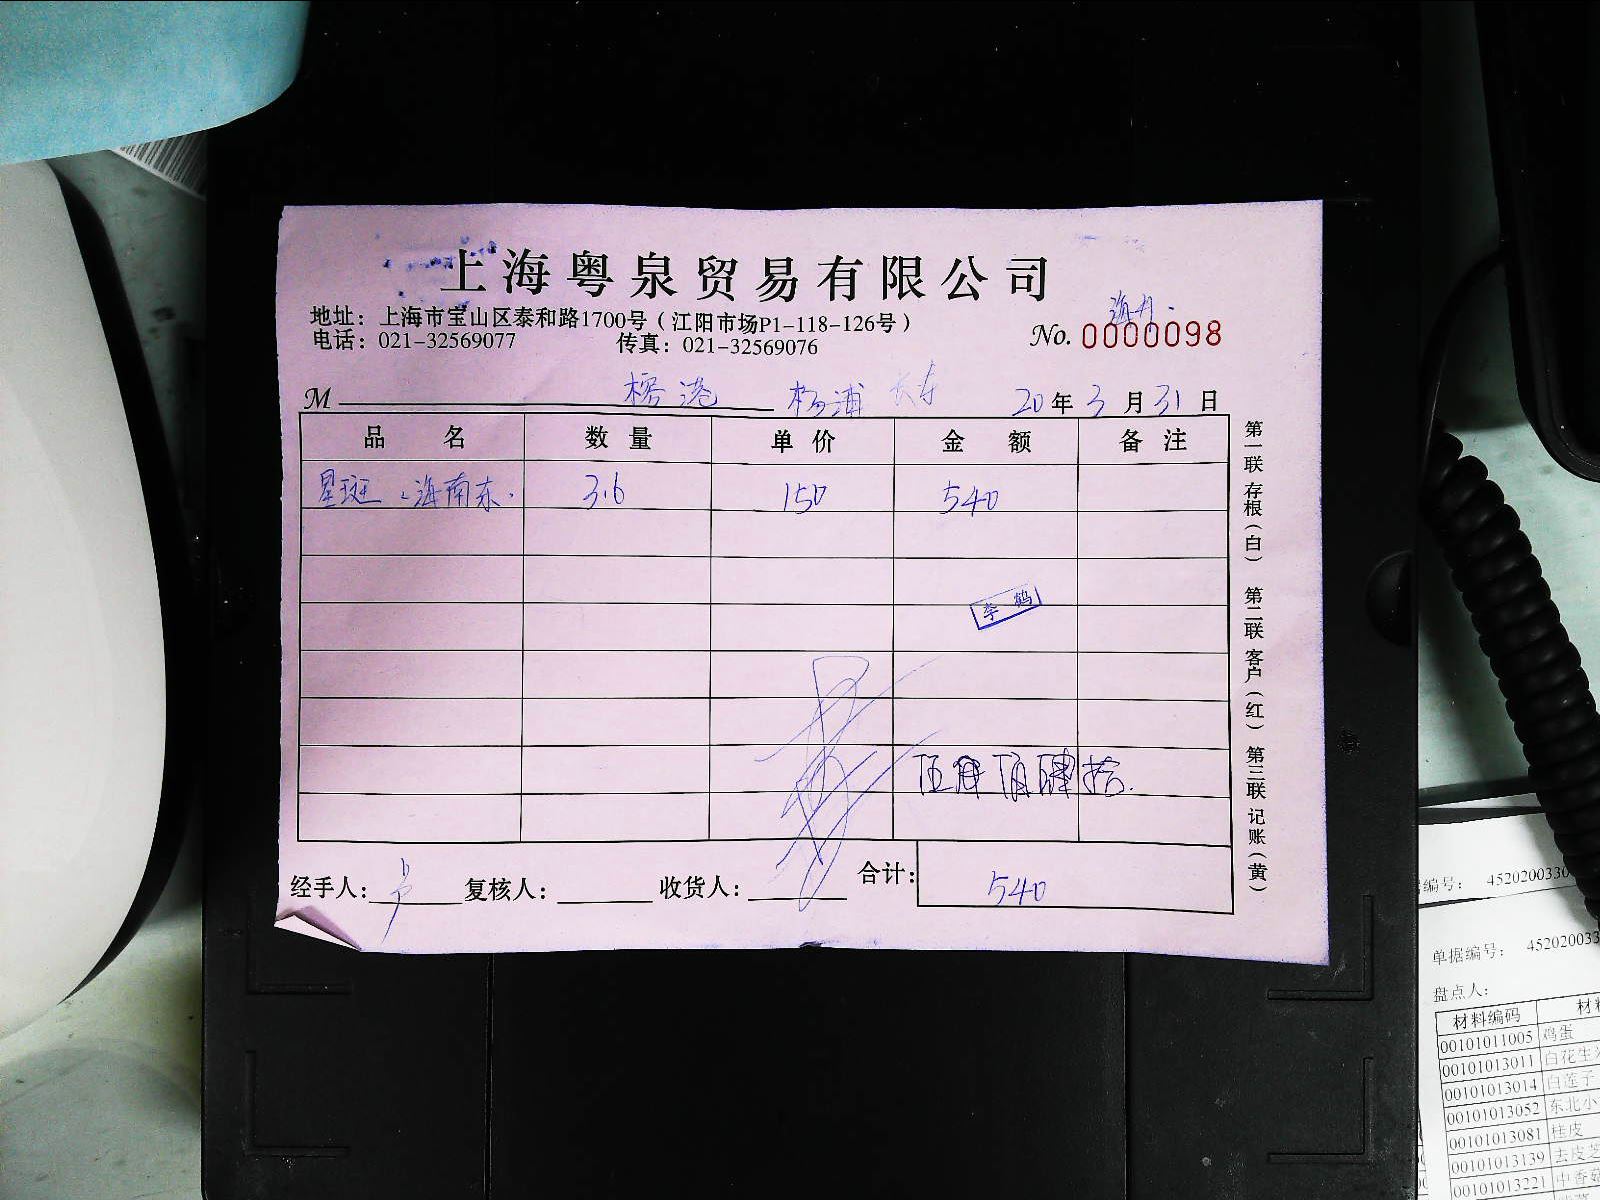 上海粤泉贸易有限公司
地址：上海市宝山区泰和路1700号（江阳市场P1-118-126号）
电话：021-32569077 传真：021-32569076
No. 0000098
M 榕港 杨浦 20年3月31日
品名 数量 单价 金额 备注
星斑 海南东 3.6 150 540
李鹤
伍佰肆拾
经手人： 复核人： 收货人： 合计： 540
第一联 存根（白） 第二联 客户（红） 第三联 记账（黄）
编号： 452020033
单据编号： 45202003
盘点人：
材料编码
00101011005 鸡蛋
00101013011 白花生
00101013014 白莲子
00101013052 东北小
00101013081 桂皮
00101013139 去皮芝
00101013221 中香菇